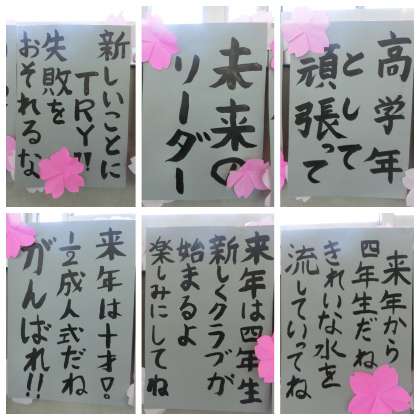 新しいことに
TRY!!
失敗を
おそれるな
未来の
リーダー
高学年
として
頑張って
来年は十才♡。
½成人式だね
がんばれ!!
来年は四年生
新しくクラブが
始まるよ
楽しみにしてね
来年から
四年生だね
きれいな水を
流していってね